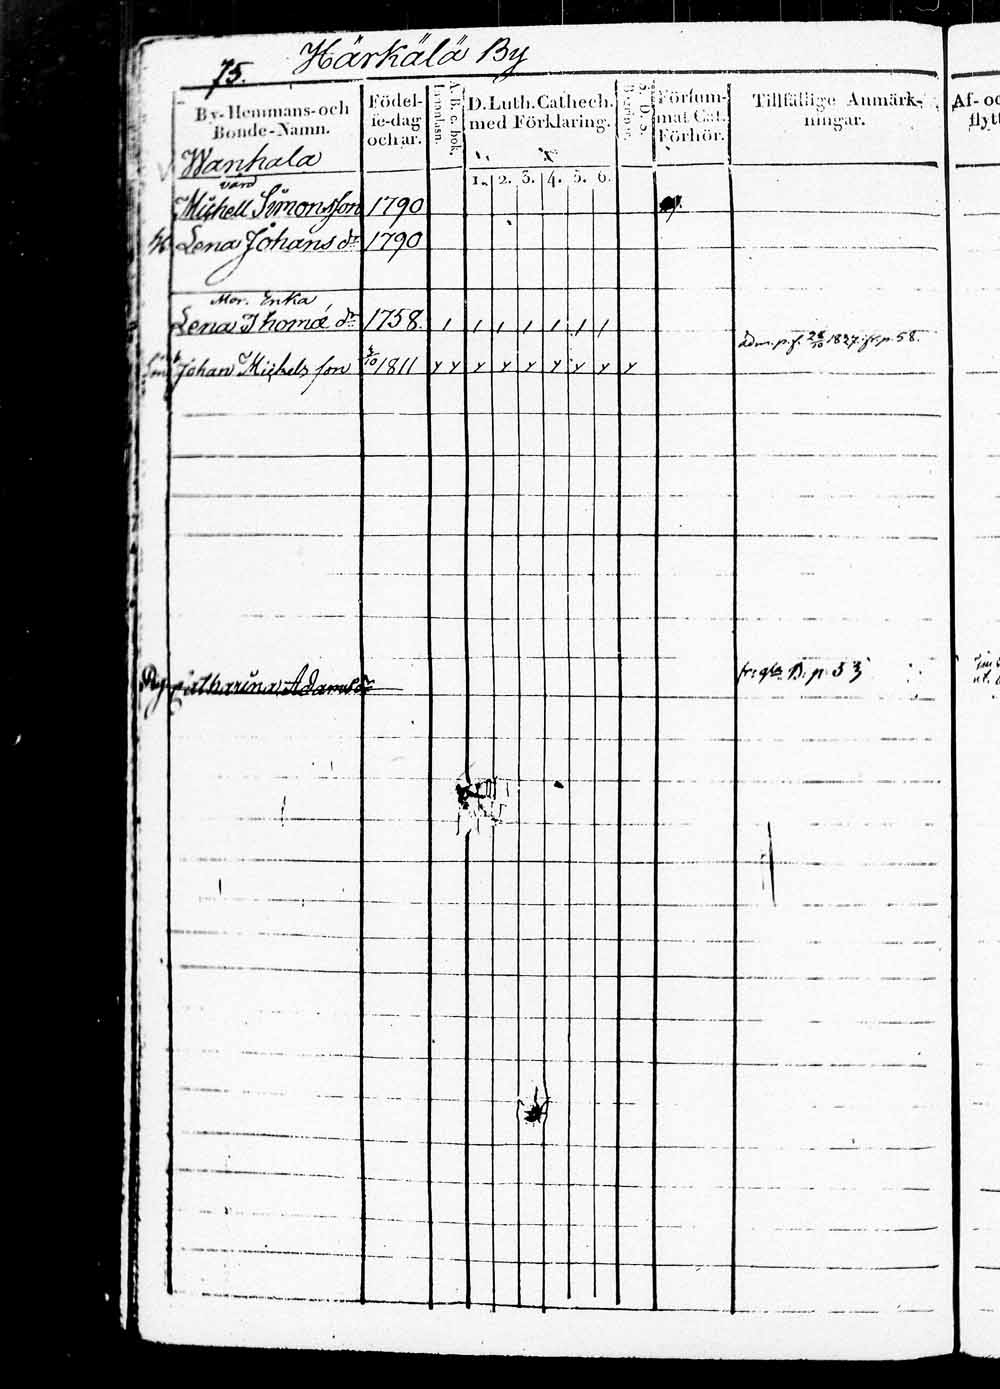 75. Härkälä By
By- Hemmans- och Bonde-Namn.
Födelsedag och år.
A. B. c. bok.
D. Luth. Cathech. med Förklaring.
1. 2. 3. 4. 5. 6.
S. D. s.
Försummat Cat. Förhör.
Tillfällige Anmärkningar.
Af- oc
flytt
Wanhala
värd
Michell Simonsson 1790
h. Lena Johans dr 1790
Mor. Enka
Lena Thomæ dr 1758. / / / / / / /
adm. p. f. 28/10 1827. fr. p. 58.
Johan Michels son 4/10 1811 y y y y y y y y y
Py Catharina Adams dr
B. p. 53